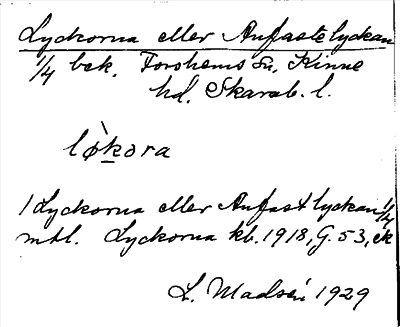 Lyckorna eller Anfastelyckan
1/4 bek. Forshems Sn, Kinne
hd. Skarab. l.
lø̀kora
1 Lyckorna eller Anfastlyckan 1/4
mtl. Lyckorna kb. 1918, G. 53, ek
L. Madsén 1929